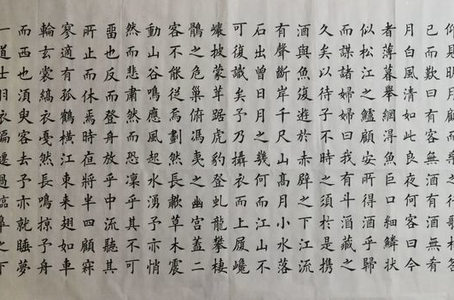 仰見明月
已而歎曰有客無酒有酒無肴
月白風清如此良夜何客曰今
者薄暮舉網得魚巨口細鱗狀
似松江之鱸顧安所得酒乎歸
而謀諸婦婦曰我有斗酒藏之
久矣以待子不時之須於是攜
酒與魚復遊於赤壁之下江流
有聲斷岸千尺山高月小水落
石出曾日月之幾何而江山不
可復識矣予乃攝衣而上履巉
巖披蒙茸踞虎豹登虬龍攀棲
鶻之危巢俯馮夷之幽宮蓋二
客不能從焉劃然長嘯草木震
動山谷鳴應風起水湧予亦悄
然而悲肅然而恐凜乎其不可
畱也反而登舟放乎中流聽其
所止而休焉時夜將半四顧寂
寥適有孤鶴橫江東來翅如車
輪玄裳縞衣戛然長鳴掠予舟
而西也須臾客去予亦就睡夢
一道士羽衣蹁躚過臨皋之下